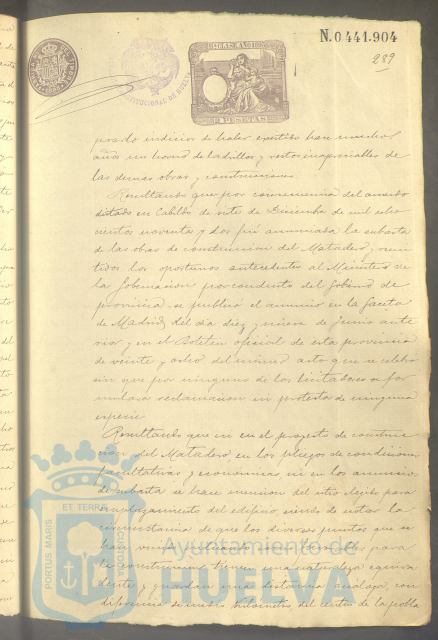 N.0.441.904
289
11ª CLASE AÑO 189
2 PESETAS
CONSTITUCIONAL DE HUELVA
pasado indicios de haber existido hace muchos
años un horno de ladrillos, y restos inapreciables de
las demas obras y construcciones
Resultando que por consecuencia del acuerdo
dictado en Cabildo de siete de Diciembre de mil ocho
cientos noventa y dos fué anunciada la subasta
de las obras de construccion del Matadero, remi
tidos los oportunos antecedentes al Ministerio de
la Gobernacion por conducto del Gobierno de
provincia, se publicó el anuncio en la Gaceta
de Madrid del dia diez y nueve de Junio ante
rior, y en el Boletin oficial de esta provincia
de veinte y ocho del mismo acto que se celebró
sin que por ninguno de los licitadores se for
mulara reclamacion ni protesta de ninguna
especie
Resultando que ni en el proyecto de construc
cion del Matadero, en los pliegos de condiciones
facultativas y económicas ni en los anuncios
de subasta se hace mencion del sitio elejido para
emplazamiento del edificio siendo de notar la
circunstancia de que los diversos puntos que se
han venido
para
la construccion tienen una naturaleza equiva
lente y guardan una distancia análoga, con
diferencia de medio kilometro, del centro de la pobla
PORTUS MARIS ET TERRAE CUSTODIA
Ayuntamiento de
HUELVA